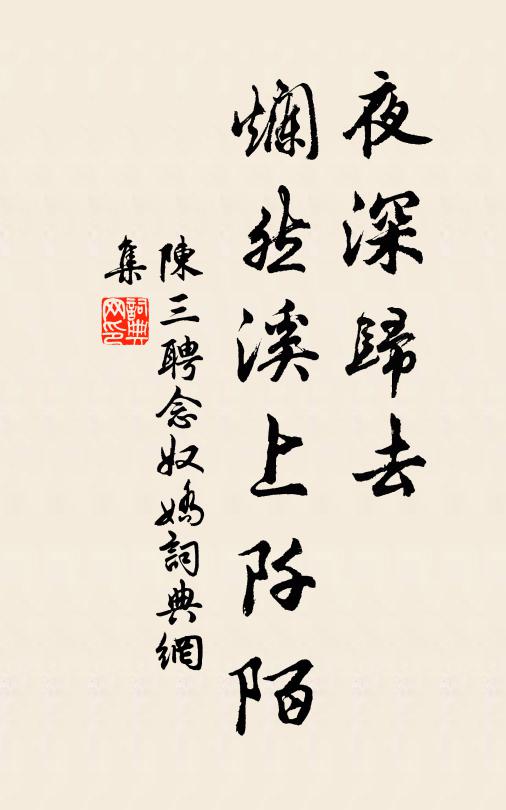 夜深歸去
爛然溪上阡陌
陳三聘念奴嬌詞典網
集
詞典網印